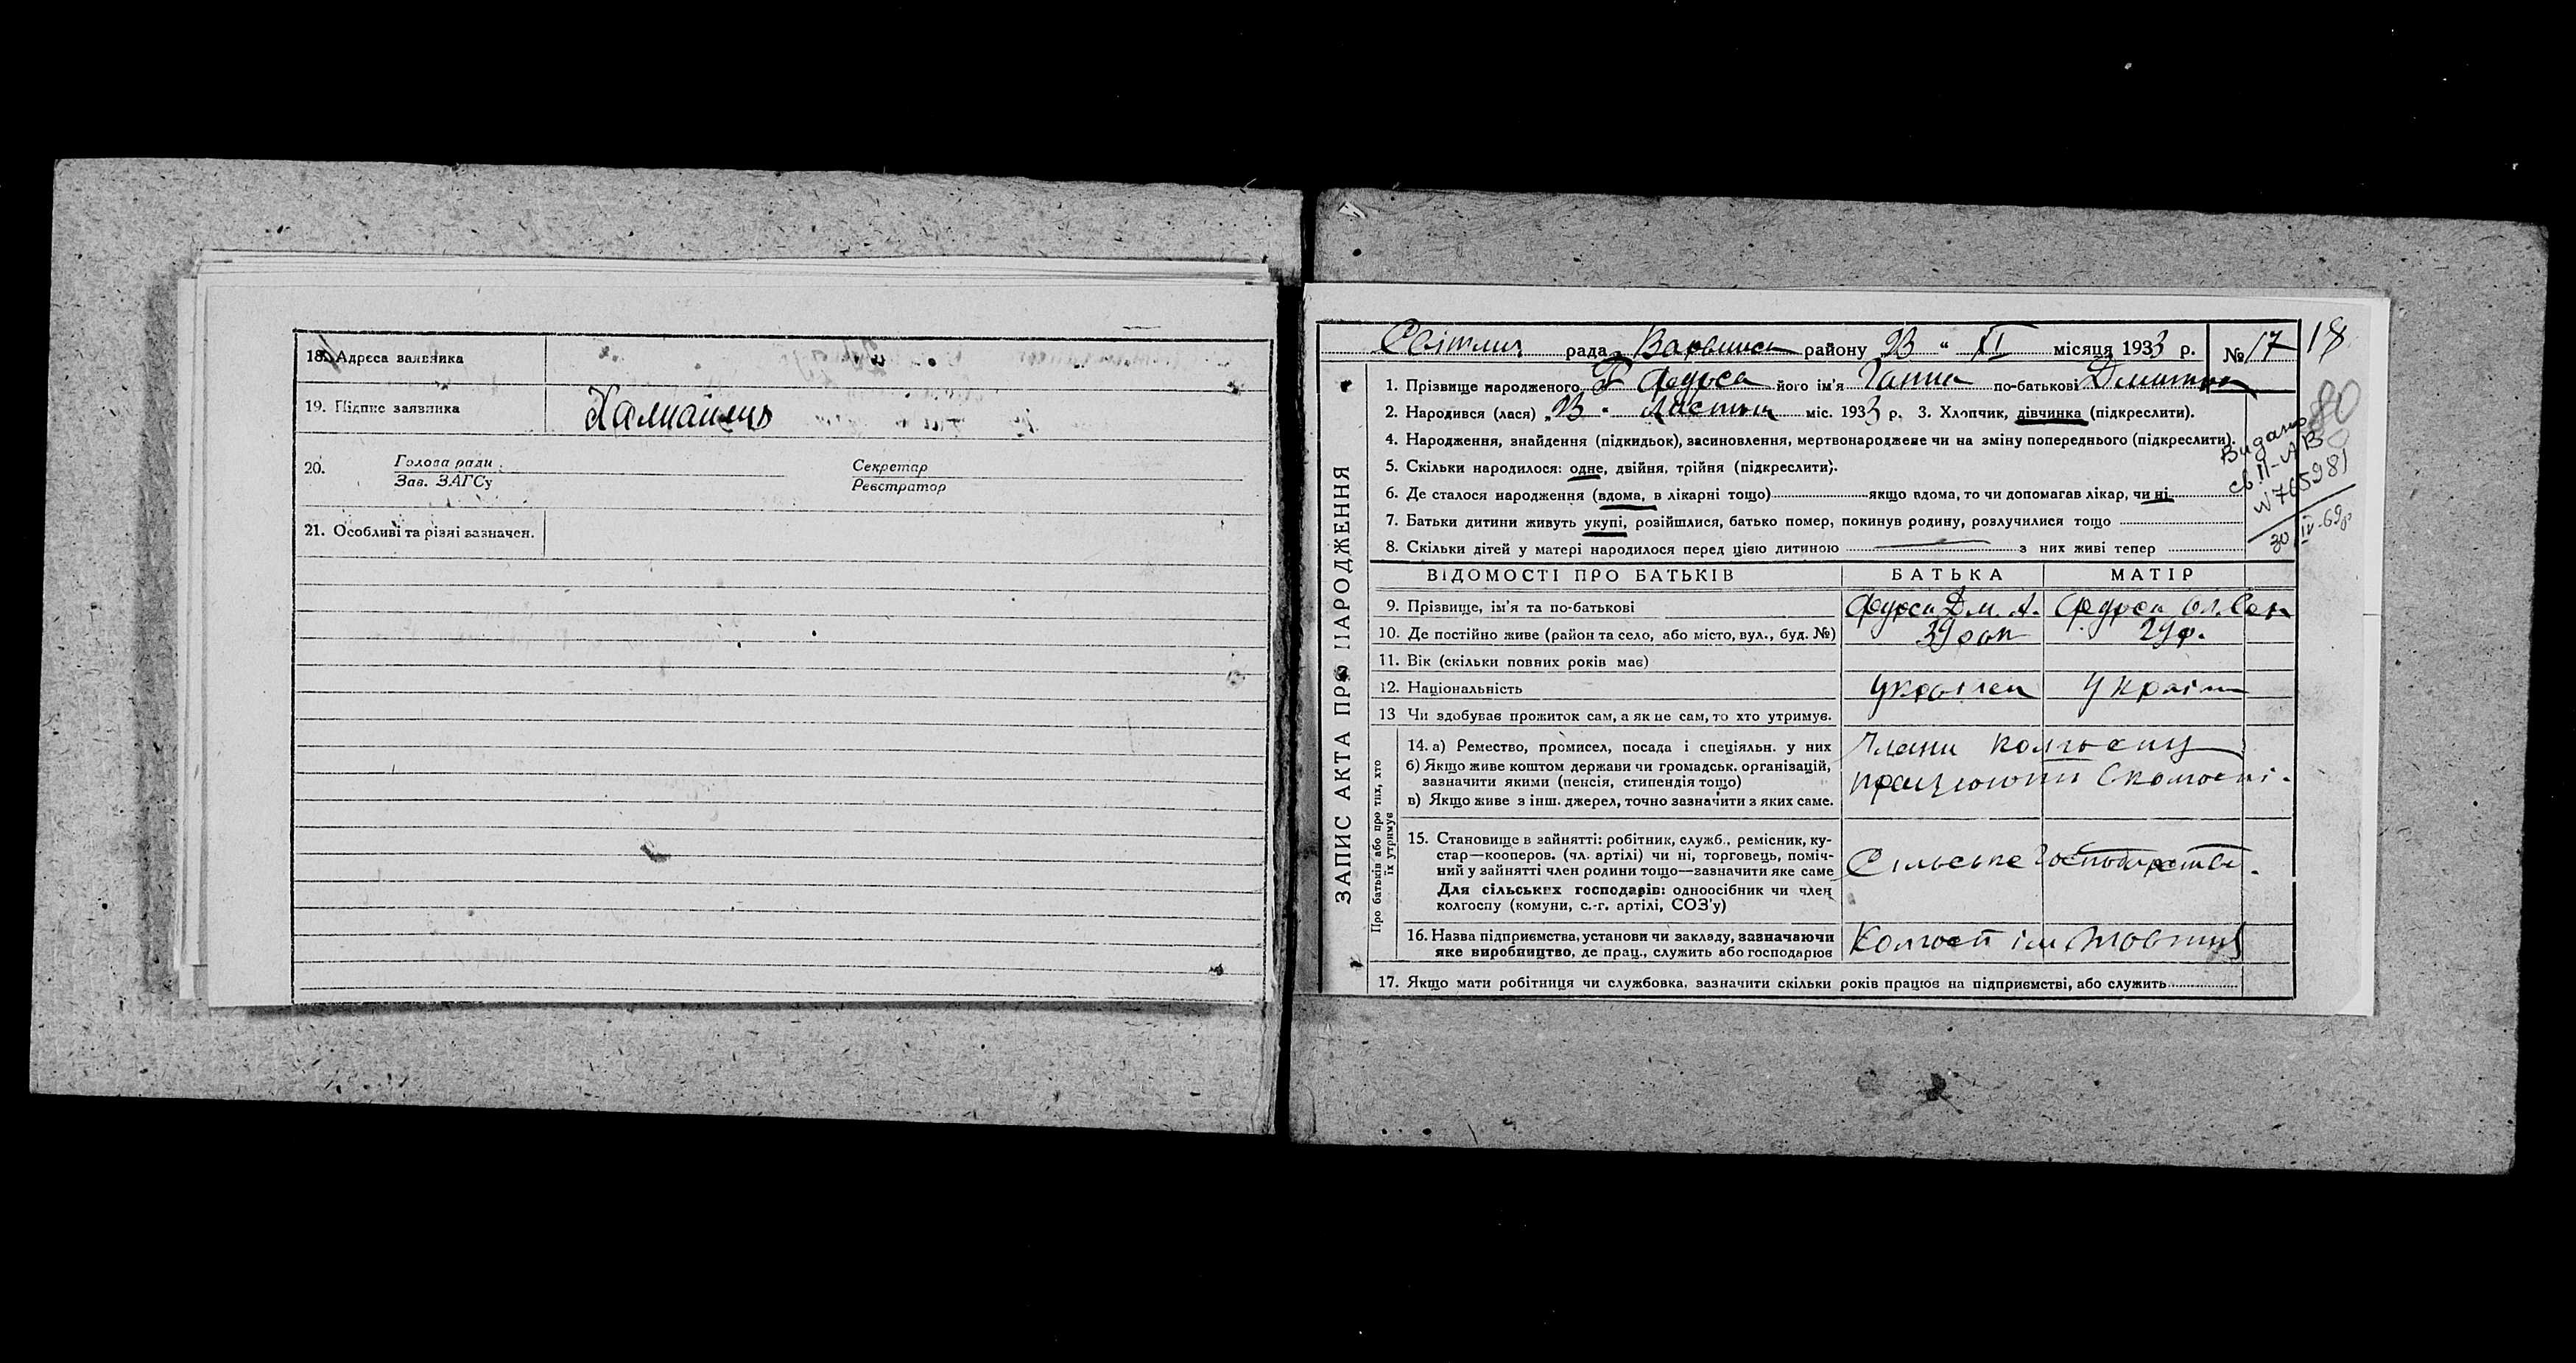 18. Адреса заявника
19. Підпис заявника
20. Голова ради Секретар
Зав. ЗАГСу Реєстратор
21. Особливі та різні зазначен.
рада району 23 " XI місяця 1933 р. № 17 18
ЗАПИС АКТА ПРО НАРОДЖЕННЯ
1. Прізвище народженого Фурса його ім'я Ганна по-батькові
80
2. Народився (лася) „23" міс. 1933 р. 3. Хлопчик, дівчинка (підкреслити).
4. Народження, знайдення (підкидьок), засиновлення, мертвонароджене чи на зміну попереднього (підкреслити).
5. Скільки народилося: одне, двійня, трійня (підкреслити).
6. Де сталося народження (вдома, в лікарні тощо) якщо вдома, то чи допомагав лікар, чи ні
7. Батьки дитини живуть укупі, розійшлися, батько помер, покинув родину, розлучилися тощо
8. Скільки дітей у матері народилося перед цією дитиною — з них живі тепер
Видано
св. II-АВ
N 765981
30 IV-69р
ВІДОМОСТІ ПРО БАТЬКІВ БАТЬКА МАТІР
9. Прізвище, ім'я та по-батькові Фурса Дм. А. Фурса Ол.
10. Де постійно живе (район та село, або місто, вул., буд. №) 39 29 р.
11. Вік (скільки повних років має)
12. Національність
13 Чи здобуває прожиток сам, а як не сам, то хто утримує.
Про батьків або про тих, хто
їх утримує
14. а) Ремество, промисел, посада і спеціяльн. у них Члени колгоспу
б) Якщо живе коштом держави чи громадськ. організацій,
зазначити якими (пенсія, стипендія тощо)
в) Якщо живе з інш. джерел, точно зазначити з яких саме.
15. Становище в зайнятті: робітник, служб., ремісник, ку-
стар—кооперов. (чл. артілі) чи ні, торговець, поміч-
ний у зайнятті член родини тощо—зазначити яке саме
Сільське
Для сільських господарів: одноосібник чи член
колгоспу (комуни, с.-г. артілі, СОЗ'у)
16. Назва підприємства, установи чи закладу, зазначаючи Колгосп ім
яке виробництво, де прац., служить або господарює
17. Якщо мати робітниця чи службовка, зазначити скільки років працює на підприємстві, або служить